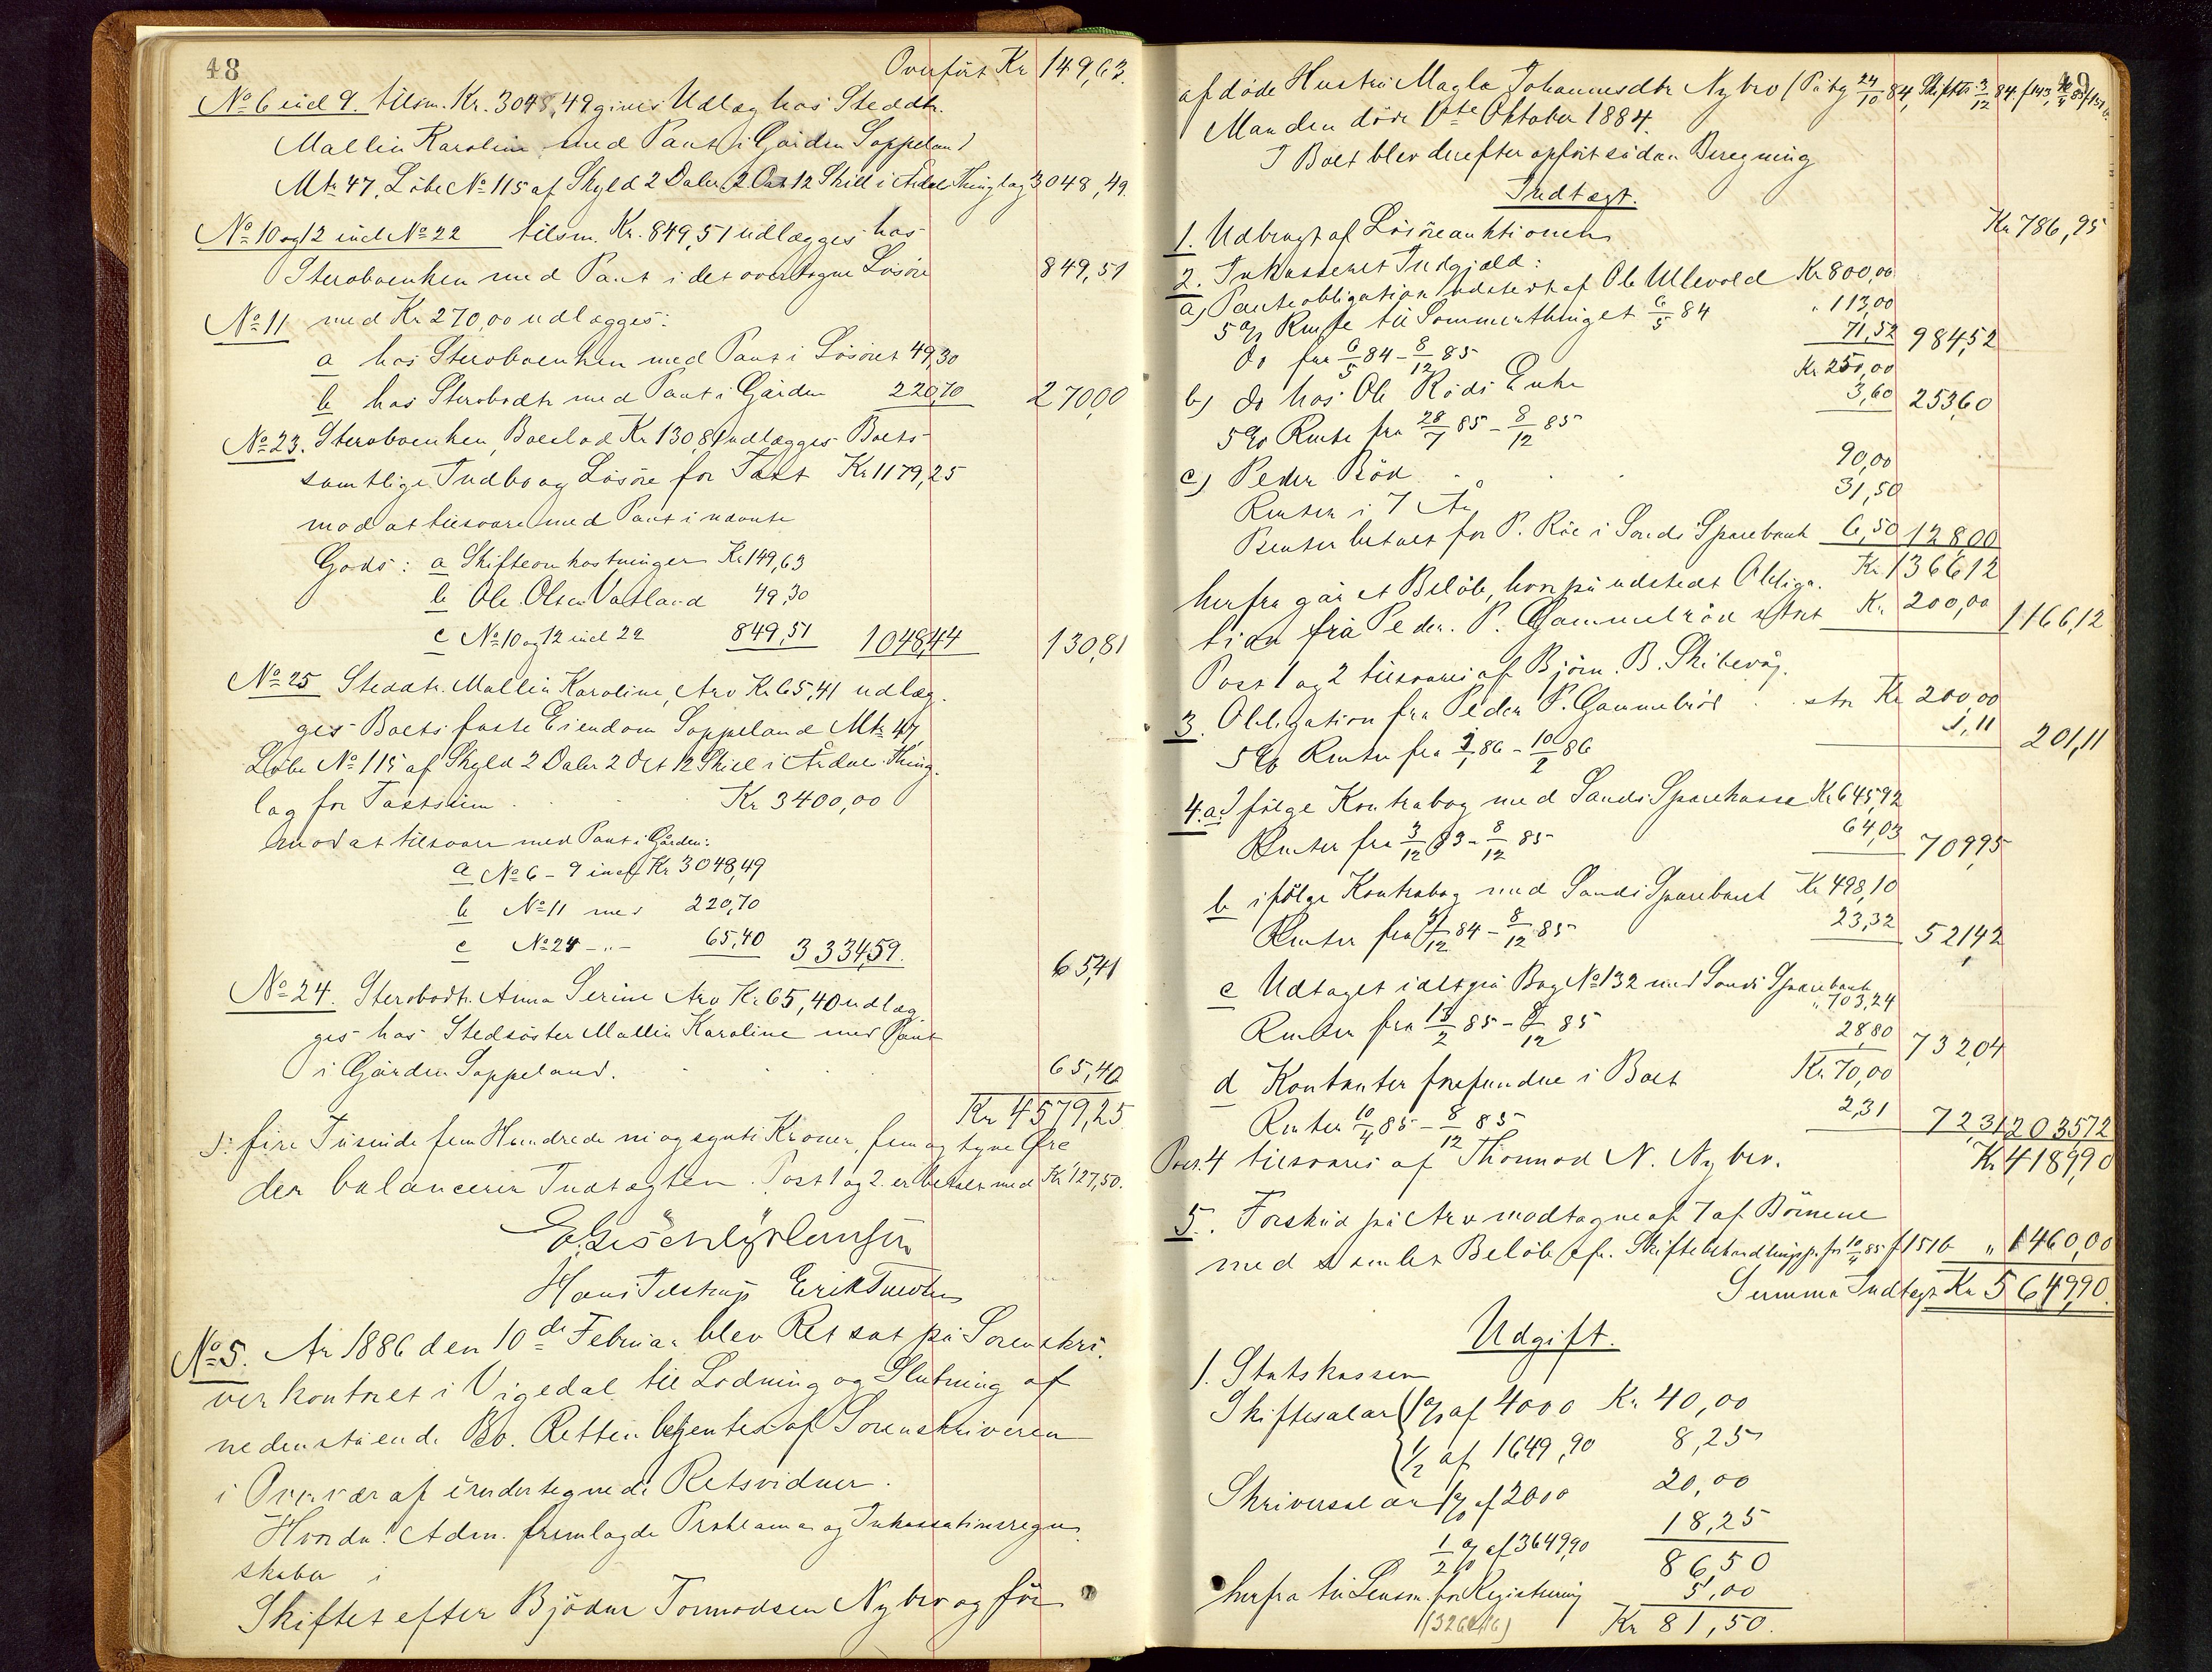 48
Overført Kr 149,63.
No 6 incl 9. tilsm. Kr. 3048,49 gives Udlæg hos Steddtr.
Mallin Karoline med Pant i Gården Soppeland
Mtr 47, Løbe No 115 af Skyld 2 Daler 2 Ort 12 Skill i Årdal Thinglag 3048,49.
No 10 og 12 incl No 22 tilsm. Kr. 849,51 udlægges hos
Sterboenken med Pant i det overtagne Løsøre 849,51
No 11 med Kr 270,00 udlægges:
a hos Sterboenken med Pant i Løsøret 49,30
b hos Sterbodtr med Pant i Gården 220,70 270,00
No 23. Sterboenken, Boeslod Kr 130,81 udlægges Boets
samtlige Indbo og Løsøre for Taxt Kr 1179,25
mod at tilsvare med Pant i nævnte
Gods: a Skifteomkostninger Kr. 149,63
b Ole Olsen Vatland 49,30
c No 10 og 12 incl 22 849,51 1048,44 130,81
No 25 Steddtr. Mallin Karoline, Arv Kr 65,41 udlæg-
ges Boets faste Eiendom Soppeland Mtr 47,
Løbe No 115 af Skyld 2 Daler 2 Ort 12 Skill i Årdals Thing-
lag for Taxtsum Kr 3400,00
mod at tilsvare med Pant i Gården:
a No 6 - 9 incl Kr 3048,49
b No 11 med 220,70
c No 24 -"- 65,40 3334,59. 65,41
No 24. Sterbodtr. Anna Serine Arv Kr. 65,40 udlæg-
ges hos Stedsøster Mallin Karoline med Pant
i Gården Soppeland. 65,40
Kr 4579,25
): fire Tusinde fem Hundrede ni og sytti Kroner, fem og tyve Øre
der balancerer Indtægten. Post 1 og 2 er betalt med Kr 127,50.
Hans Tistrup Erik
No 5. År 1886 den 10de Februar blev Ret sat på Sorenskri-
verkontoret i Vigedal til Lodning og Slutning af
nedenstående Bo. Retten betjentes af Sorenskriveren
i Overvær af undertegnede Retsvidner.
Hvorda: Adm. fremlagde Proklama og Inkassationsregn-
skaber i
Skiftet efter Bjødne Tormodsen Nybro og før
49
afdøde Hustru Magla Johannesdtr Nybro (Påbg 24/10 84, Skiftetr. 3/12 84 f 143, 10/4 85 f 151b.
Manden døde 1ste Oktober 1884.
I Boet blev derefter opført sådan Beregning
Indtægt.
1. Udbragt af Løsøreauktionen Kr 786,95
2. Inkasseret Indgjæld:
a) Panteobligation udstedt af Ole Ullevold Kr 800,00
5 % Rente til Sommerthinget 6/5 84 " 113,00
do fra 6/5 84 - 8/12 85 71,52 984,52
b) do hos Ole Røds Enke Kr 250,00
5 % Rente fra 28/7 85 - 8/12 85 3,60 253,60
c) Peder Röd 90,00
Renter i 7 År 31,50
Renter betalt for P. Röe i Sands Sparebank 6,50 128,00
Kr. 1366,12
herfra går et Beløb, hvorpå udstedt Obliga-
tion fra Peder P. Gammelröd stor Kr. 200,00 1166,12
Post 1 og 2 tilsvares af Bjørn B. Skibevåg.
3. Obligation fra Peder P. Gammelröd stor Kr 200,00
5 % Renter fra 1/1 86 - 10/2 86 1,11 201,11
4. a. Ifølge Kontrabog med Sands Sparekasse Kr 645,92
Renter fra 3/12 83 - 8/12 85 64,03 709,95
b ifølge Kontrabog med Sands Sparebank Kr 498,10
Renter fra 31/12 84 - 8/12 85 23,32 521,42
c Udtaget idetpå Bog No 132 med Sands Sparebank
" 703,24
Renter fra 13/2 85 - 8/12 85 28,80 732,04
d Kontanter forefundne i Boet Kr. 70,00
Renter 10/4 85 - 8/12 85 2,31 72,31 2035,72
Post 4 tilsvares af Thormod N. Nybro. Kr 4189,90
5. Forskud på Arv modtagne af 7 af Börnene
med samlet Beløb cfr. Skiftebehandlingspr. fr 10/4 85 f 151b " 1460,00
Summa Indtægt Kr 5649,90.
Udgift.
1. Statskassen
Skiftesalær 1 % af 4000 Kr. 40,00
1/2 af 1649,90 8,25
Skriversalær 1 % af 2000 20,00
1/2 % af 3649,90 18,25
86,50
herfra til Lensm. for Registrering 5,00
Kr 81,50.